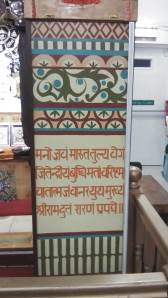 मनोजवं मारुततुल्य वेगं
जितेन्द्रीय बुध्धिमतां वरिष्टम
वातात्मजं वानरयुथ मुख्यं
श्रीरामदुतं सरणं प्रपधे॥